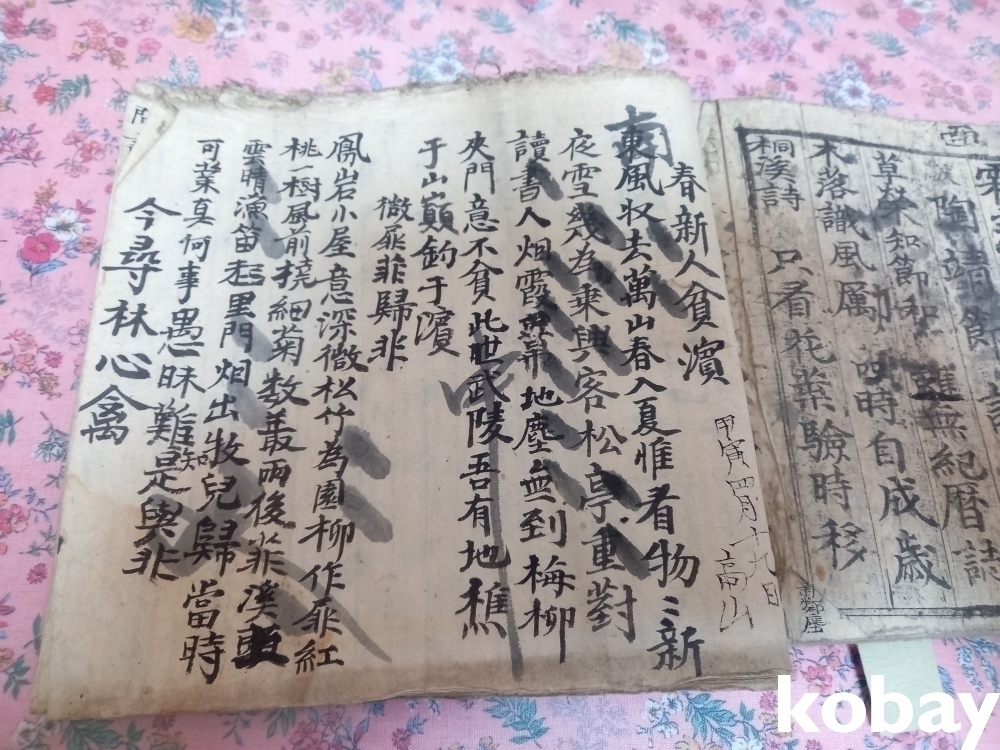 陶靖節
草榮知節和
雖無紀曆誌
木落識風厲
四時自成歲
桐溪詩
只看花葉驗時移
甲寅四月十九日
高山
春新人貧濱
東風收去萬山春入夏惟看物〻新
夜雪幾為乘興客松亭重對
讀書人烟霞地塵無到梅柳
夾門意不貧此世武陵吾有地樵
于山巔釣于濱
微扉菲歸非
鳳岩小屋意深微松竹為園柳作扉紅
桃一樹風前撓細菊數叢雨後菲溪
雲晴漁笛起里門烟出牧兒歸當時
可業真何事愚昧難知是與非
今尋林心禽
kobay